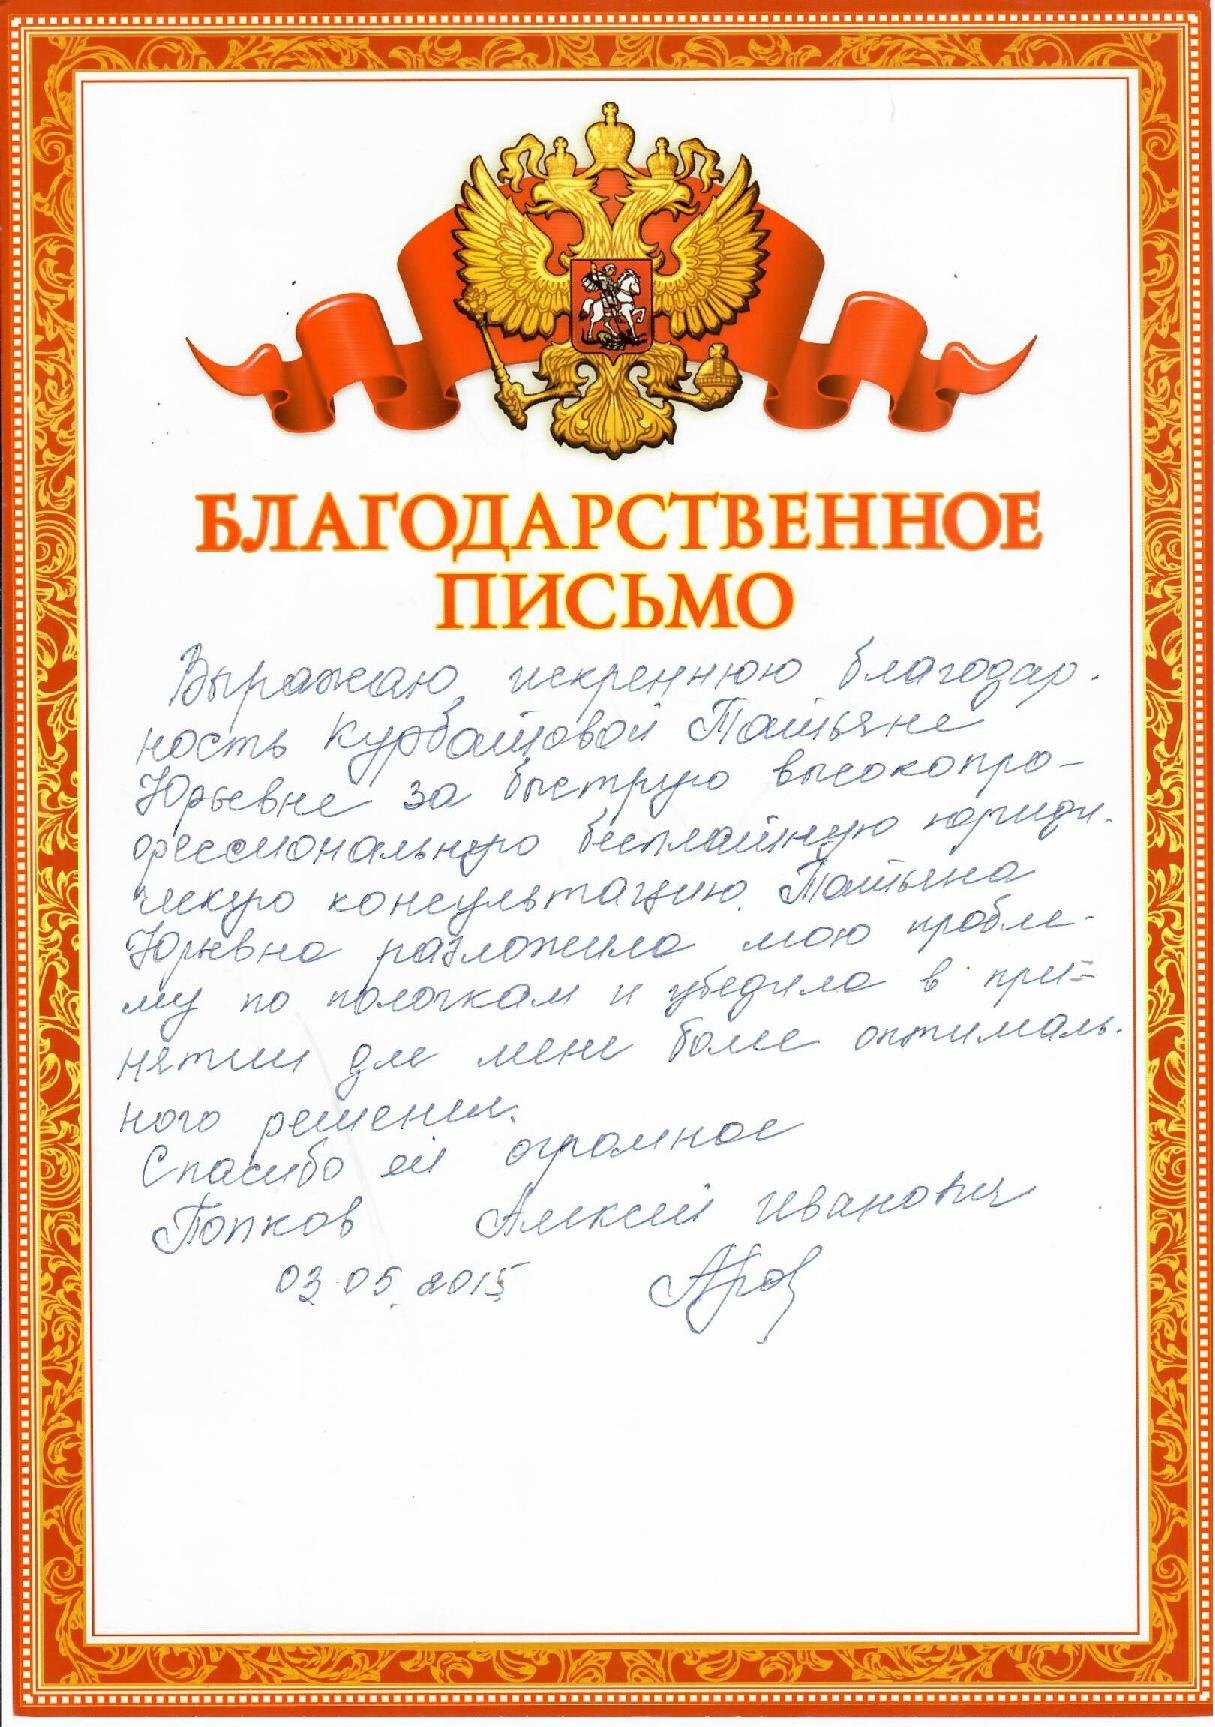 БЛАГОДАРСТВЕННОЕ
ПИСЬМО
Выражаю искреннюю благодар-
ность Курбатовой Татьяне
Юрьевне за быструю высокопро-
фессиональную бесплатную юриди-
ческую консультацию. Татьяна
Юрьевна разложила мою пробле-
му по полочкам и убедила в при-
нятии для меня более оптималь-
ного решения.
Спасибо ей огромное
Попков Алексей Иванович
03.05.2015